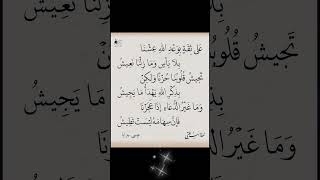 عَلَى ثِقَةٍ بِوَعْدِ اللهِ عِشْنَا
بِلَا يَأْسٍ وَمَا زِلْنَا نَعِيشُ
تَجِيشُ قُلُوبُنَا حُزْنًا وَلَكِنْ
بِذِكْرِ اللهِ يَهْدَأُ مَا يَجِيشُ
وَمَا غَيْرُ الدُّعَاءِ إِذَا عَجَزْنَا
فَإِنَّ سِهَامَهُ لَيْسَتْ تَطِيشُ